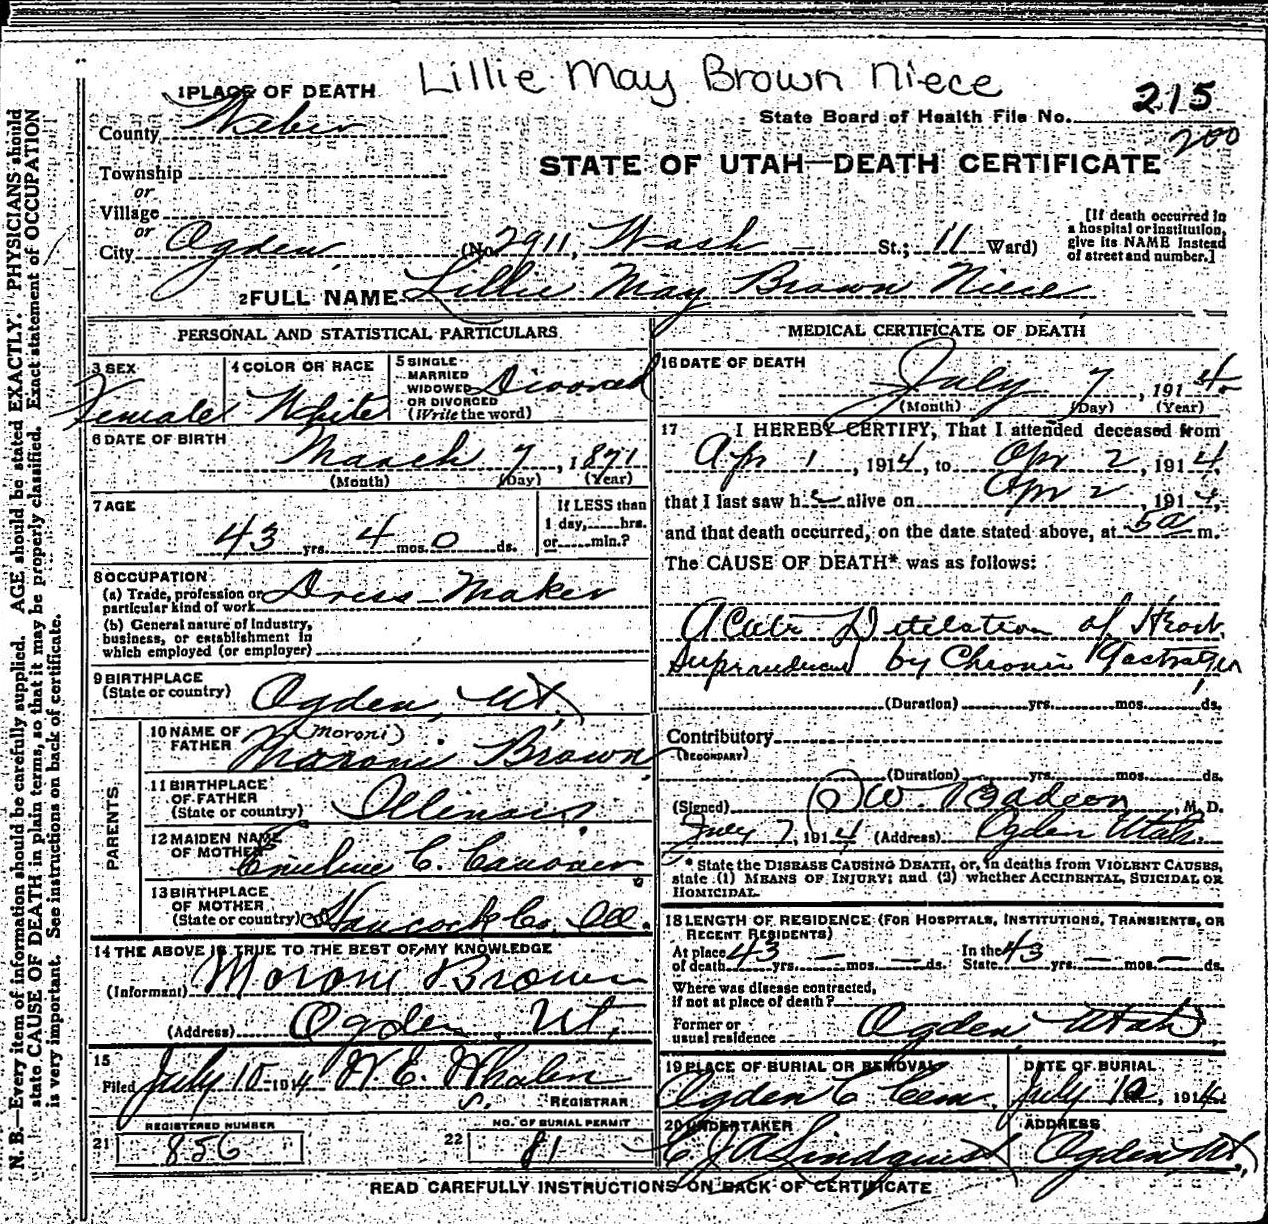 Lillie May Brown Niece
1 PLACE OF DEATH
215
State Board of Health File No.
200
County Weber
STATE OF UTAH—DEATH CERTIFICATE
Township
or
Village
or
City Ogden (No. 2911, Wash St.; 11 Ward)
[If death occurred in
a hospital or institution,
give its NAME instead
of street and number.]
2 FULL NAME Lillie May Brown Niece
PERSONAL AND STATISTICAL PARTICULARS
3 SEX
Female
4 COLOR OR RACE
White
5 SINGLE
MARRIED
WIDOWED
OR DIVORCED
(Write the word)
Divorced
6 DATE OF BIRTH
March 7, 1871
(Month) (Day) (Year)
7 AGE
43 yrs. 4 mos. 0 ds.
If LESS than
1 day, hrs.
or min.?
8 OCCUPATION
(a) Trade, profession or
particular kind of work Dress-Maker
(b) General nature of industry,
business, or establishment in
which employed (or employer)
9 BIRTHPLACE
(State or country)
Ogden, Ut.
PARENTS
10 NAME OF
FATHER
(Moroni)
Moroni Brown
11 BIRTHPLACE
OF FATHER
(State or country)
Illinois
12 MAIDEN NAME
OF MOTHER
Emeline C.
13 BIRTHPLACE
OF MOTHER
(State or country)
Hancock Co. Ill.
14 THE ABOVE IS TRUE TO THE BEST OF MY KNOWLEDGE
(Informant) Moroni Brown
(Address) Ogden, Ut.
15
Filed July 10 1914 W. E. Whalen
REGISTRAR
REGISTERED NUMBER
21 856
NO. OF BURIAL PERMIT
22 81
MEDICAL CERTIFICATE OF DEATH
16 DATE OF DEATH
July 7, 1914
(Month) (Day) (Year)
17 I HEREBY CERTIFY, That I attended deceased from
Apr 1, 1914, to Apr 2, 1914,
that I last saw her alive on Apr 2, 1914,
and that death occurred, on the date stated above, at 5 a m.
The CAUSE OF DEATH* was as follows:
Acute of Heart
by Chronic
(Duration) yrs. mos. ds.
Contributory
(SECONDARY)
(Duration) yrs. mos. ds.
(Signed) W. Badcon, M. D.
July 7, 1914 (Address) Ogden Utah.
* State the DISEASE CAUSING DEATH, or, in deaths from VIOLENT CAUSES,
state (1) MEANS OF INJURY; and (2) whether ACCIDENTAL, SUICIDAL OR
HOMICIDAL.
18 LENGTH OF RESIDENCE (FOR HOSPITALS, INSTITUTIONS, TRANSIENTS, OR
RECENT RESIDENTS)
At place
of death 43 yrs. — mos. — ds.
In the
State 43 yrs. — mos. — ds.
Where was disease contracted,
if not at place of death?
Former or
usual residence Ogden, Utah
19 PLACE OF BURIAL OR REMOVAL
Ogden C Cem.
DATE OF BURIAL
July 10, 1914
20 UNDERTAKER
C J A Lindquist
ADDRESS
Ogden, Ut.
READ CAREFULLY INSTRUCTIONS ON BACK OF CERTIFICATE
N. B.—Every item of information should be carefully supplied. AGE should be stated EXACTLY. PHYSICIANS should
state CAUSE OF DEATH in plain terms, so that it may be properly classified. Exact statement of OCCUPATION
is very important. See instructions on back of certificate.